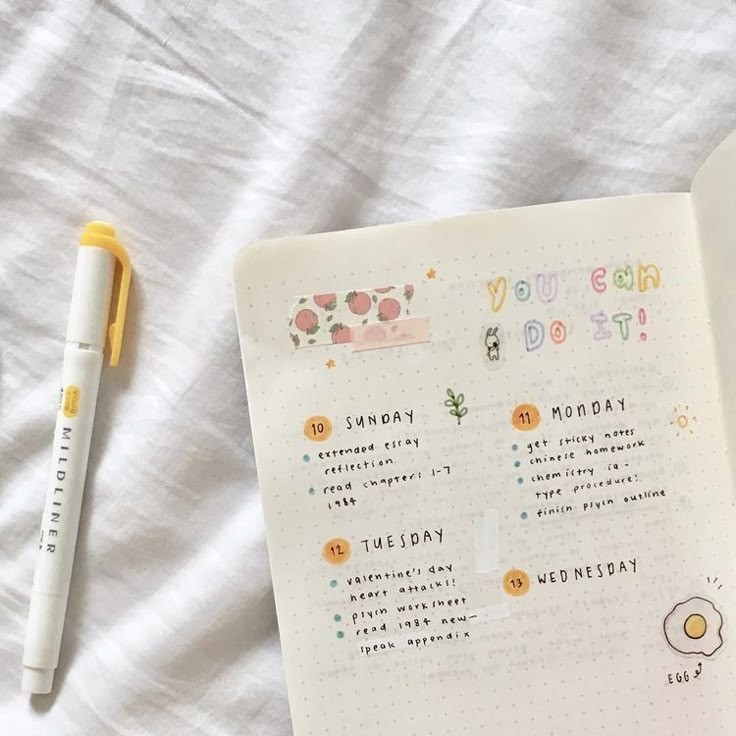 YOU CAN
DO IT!
10 SUNDAY
extended essay
reflection
read chapters 1-7
1984
11 MONDAY
get sticky notes
chinese homework
chemistry ia -
type procedure!
finish psych outline
12 TUESDAY
valentine's day
heart attacks!
psych worksheet
read 1984 new-
speak appendix
13 WEDNESDAY
EGG
MILDLINER